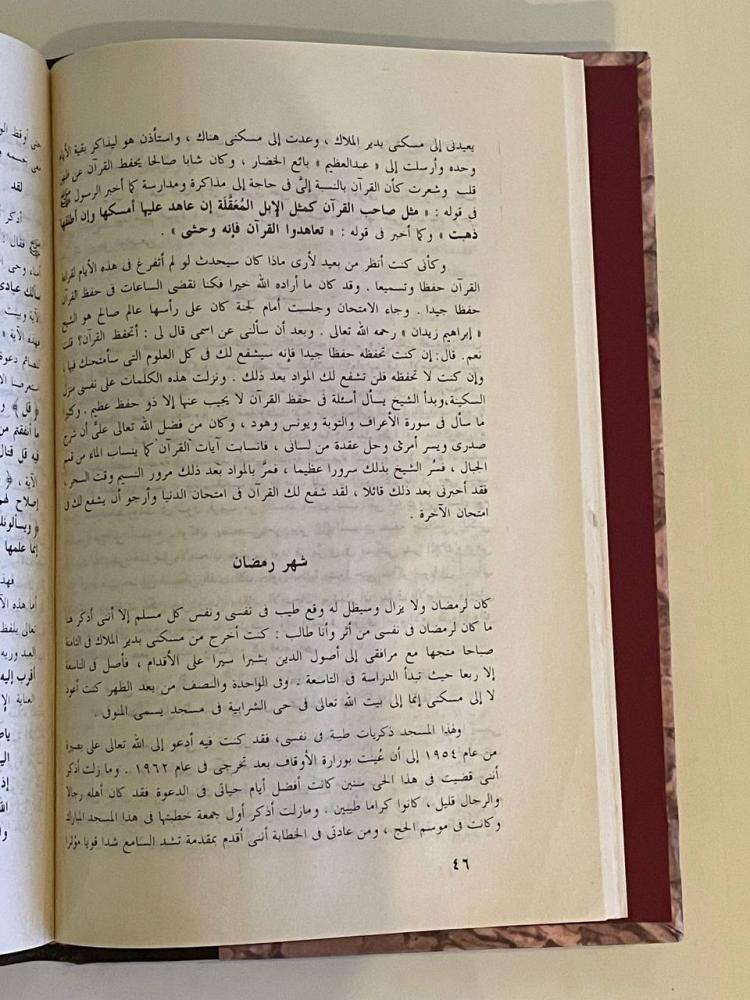 يعيدنى إلى مسكنى بدير الملاك ، وعدت إلى مسكنى هناك ، واستأذن هو ليذاكر بقية الأيام
وحده وأرسلت إلى « عبدالعظيم » بائع الخضار ، وكان شابا صالحا يحفظ القرآن عن ظهر
قلب وشعرت كأن القرآن بالنسبة إلىَّ فى حاجة إلى مذاكرة ومدارسة كما أخبر الرسول ﷺ
فى قوله : « مثل صاحب القرآن كمثل الإبل المُعَقَّلَة إن عاهد عليها أمسكها وإن أطلقها
ذهبت » وكما أخبر فى قوله : « تعاهدوا القرآن فإنه وحشى » .
وكأنى كنت أنظر من بعيد لأرى ماذا كان سيحدث لو لم أتفرغ فى هذه الأيام لقراءة
القرآن حفظا وتسميعا . وقد كان ما أراده الله خيرا فكنا نقضى الساعات فى حفظ القرآن
حفظا جيدا . وجاء الامتحان وجلست أمام لجنة كان على رأسها عالم صالح هو الشيخ
« إبراهيم زيدان » رحمه الله تعالى . وبعد أن سألنى عن اسمى قال لى : أتحفظ القرآن؟ قلت
نعم. قال: إن كنت تحفظه حفظا جيدا فإنه سيشفع لك فى كل العلوم التى سأمتحنك فيها ،
وإن كنت لا تحفظه فلن تشفع لك المواد بعد ذلك . ونزلت هذه الكلمات على نفسى منزل
السكينة،وبدأ الشيخ يسأل أسئلة فى حفظ القرآن لا يجيب عنها إلا ذو حفظ عظيم . وكثيرا
ما سأل فى سورة الأعراف والتوبة ويونس وهود ، وكان من فضل الله تعالى علىَّ أن شرح
صدرى ويسر أمرى وحل عقدة من لسانى ، فانسابت آيات القرآن كما ينساب الماء من قمم
الجبال ، فسُرَّ الشيخ بذلك سرورا عظيما ، فمرَّ بالمواد بعد ذلك مرور النسيم وقت السحر ،
فقد أخبرنى بعد ذلك قائلا ، لقد شفع لك القرآن فى امتحان الدنيا وأرجو أن يشفع لك فى
امتحان الآخرة .
شهر رمضان
كان لرمضان ولا يزال وسيظل له وقع طيب فى نفسى ونفس كل مسلم إلا أننى أذكر هنا
ما كان لرمضان فى نفسى من أثر وأنا طالب : كنت أخرج من مسكنى بدير الملاك فى الثامنة
صباحا متجها مع مرافقى إلى أصول الدين بشبرا سيرا على الأقدام ، فأصل فى التاسعة
إلا ربعا حيث تبدأ الدراسة فى التاسعة . وفى الواحدة والنصف من بعد الظهر كنت أعود
لا إلى مسكنى إنما إلى بيت الله تعالى فى حى الشرابية فى مسجد يسمى المنوفى .
ولهذا المسجد ذكريات طيبة فى نفسى، فقد كنت فيه أدعو إلى الله تعالى على بصيرة
من عام ١٩٥٤ إلى أن عُينت بوزارة الأوقاف بعد تخرجى فى عام ١٩٦٢ . وما زلت أذكر
أننى قضيت فى هذا الحى سنين كانت أفضل أيام حياتى فى الدعوة فقد كان أهله رجالا
والرجال قليل ، كانوا كراما طيبين . ومازلت أذكر أول جمعة خطبتها فى هذا المسجد المبارك
وكانت فى موسم الحج ، ومن عادتى فى الخطابة أننى أقدم بمقدمة تشد السامع شدا قويا مؤثرا
٤٦